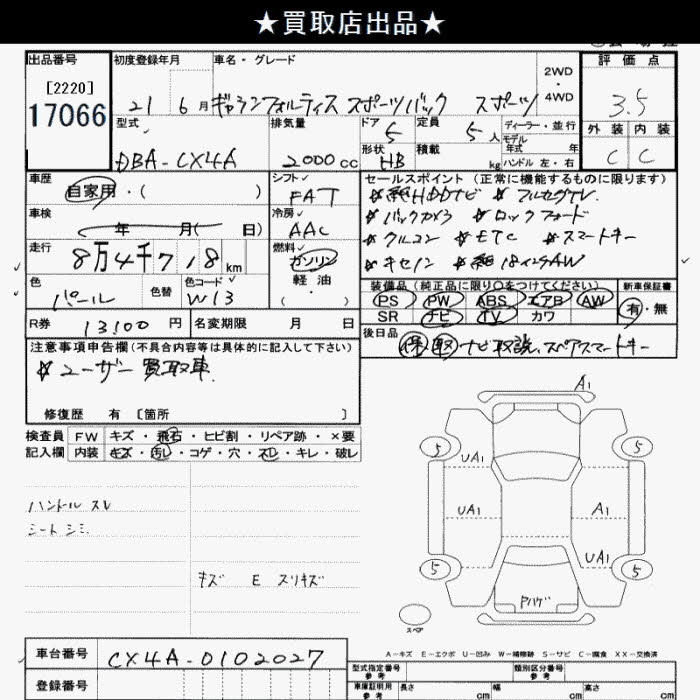 ★買取店出品★
出品番号 初度登録年月 車名・グレード 2WD・4WD 評価点
[2220]
17066
21 6月 ギャランフォルティス スポーツバック スポーツ 3.5
型式 排気量 ドア 5 定員 5人 ディーラー・並行 外装 内装
モデル年式 年
DBA-CX4A 2000cc 形状 HB 積載 kg ハンドル 左・右 C C
車歴 自家用・( ) シフト FAT
セールスポイント (正常に機能するものに限ります)
☆純HDDナビ ☆フルセグTV
車検 年 月( 日) 冷房 AAC
☆バックカメラ ☆ロックフォード
☆クルコン ☆ETC ☆スマートキー
走行 8万4千718km 燃料 ガソリン・軽油・( )
☆キセノン ☆純18インチAW
色 パール 色替 色コード W13
装備品(純正品に限り○をつけてください) 新車保証書
PS PW ABS エアB AW 有・無
SR ナビ TV カワ
R券 13,100円 名変期限 月 日
後日品 保 取 ナビ取説、スペアスマートキー
注意事項申告欄(不具合内容等は具体的に記入して下さい)
☆ユーザー買取車
修復歴 有 [箇所 ]
検査員 FW キズ・飛石・ヒビ割・リペア跡・×要
記入欄 内装 キズ・汚レ・コゲ・穴・スレ・キレ・破レ
ハンドル スレ
シート シミ
キズ E スリキズ
A1
5 5
UA1
UA1 A1
UA1
5 5
Pハゲ
スペア
A-キズ E-エクボ U-凹み W-補修跡 S-サビ C-腐食 XX-交換済
車台番号 CX4A-0102027
型式指定番号 類別区分番号
登録番号
車庫証明用参考 長さ cm 幅 cm 高さ cm